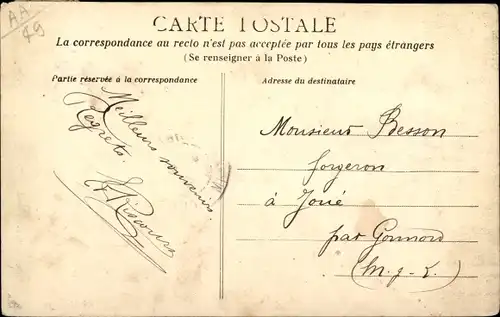 AA
49
CARTE POSTALE
La correspondance au recto n'est pas acceptée par tous les pays étrangers
(Se renseigner à la Poste)
Partie réservée à la correspondance
Adresse du destinataire
Meilleurs souvenirs
Regrets.
Monsieur Besson
forgeron
à Joué
par Gonnord
(M-&-L.)